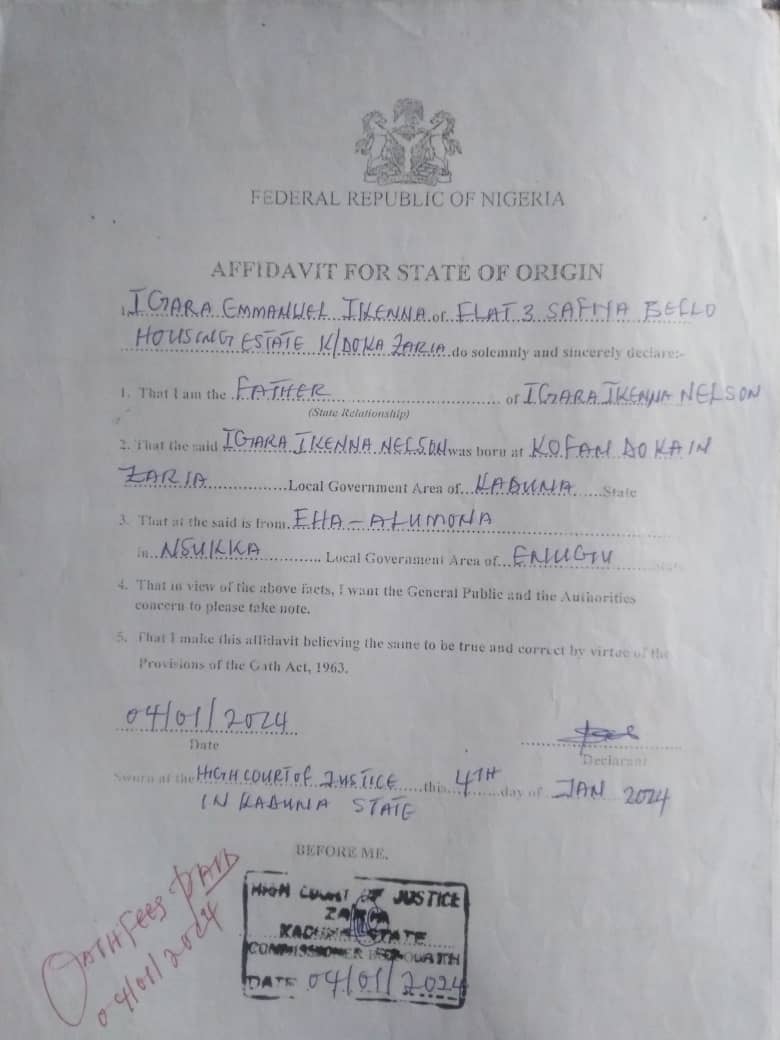 FEDERAL REPUBLIC OF NIGERIA
AFFIDAVIT FOR STATE OF ORIGIN
I, IGARA EMMANUEL IKENNA of FLAT 3 SAFIYA BELLO
HOUSING ESTATE K/DOKA ZARIA do solemnly and sincerely declare:-
1. That I am the FATHER of IGARA IKENNA NELSON
(State Relationship)
2. That the said IGARA IKENNA NELSON was born at KOFAN DOKA IN
ZARIA Local Government Area of KADUNA State
3. That at the said is from EHA-ALUMONA
in NSUKKA Local Government Area of ENUGU State
4. That in view of the above facts, I want the General Public and the Authorities
concern to please take note.
5. That I make this affidavit believing the same to be true and correct by virtue of the
Provisions of the Oath Act, 1963.
04/01/2024
Date
Declarant
Sworn at the HIGH COURT OF JUSTICE this 4TH day of JAN 2024
IN KADUNA STATE
BEFORE ME.
OATH Fees PAID
04/01/2024
HIGH COURT OF JUSTICE
ZARIA
KADUNA STATE
COMMISSIONER FOR OATH
DATE 04/01/2024